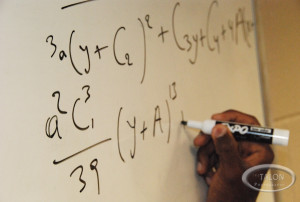 3a(y+C₂)² + C₃y+C₄y+4A
a²C₁³/39 (y+A)¹³ +
EXPO